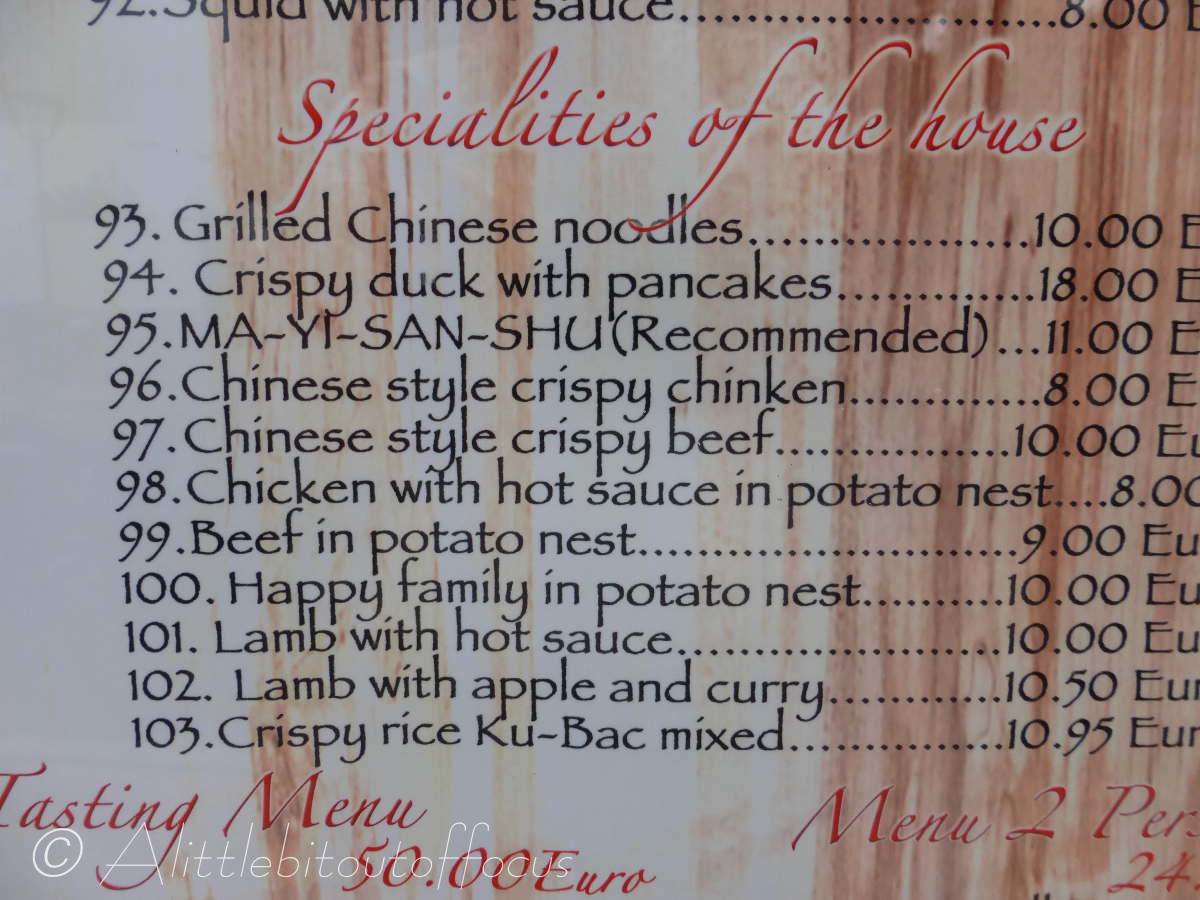 92.Squid with hot sauce........................8.00 E
Specialities of the house
93. Grilled Chinese noodles..................10.00 E
94. Crispy duck with pancakes.............18.00 E
95.MA-YI-SAN-SHU(Recommended)...11.00 E
96.Chinese style crispy chinken.............8.00 E
97.Chinese style crispy beef...............10.00 Eu
98.Chicken with hot sauce in potato nest....8.00
99.Beef in potato nest........................9.00 Eu
100. Happy family in potato nest.........10.00 Eu
101. Lamb with hot sauce.....................10.00 Eu
102. Lamb with apple and curry...........10.50 Eur
103.Crispy rice Ku-Bac mixed..............10.95 Eur
Tasting Menu
50.00Euro
Menu 2 Pers
24.
© Alittlebitoutoffocus